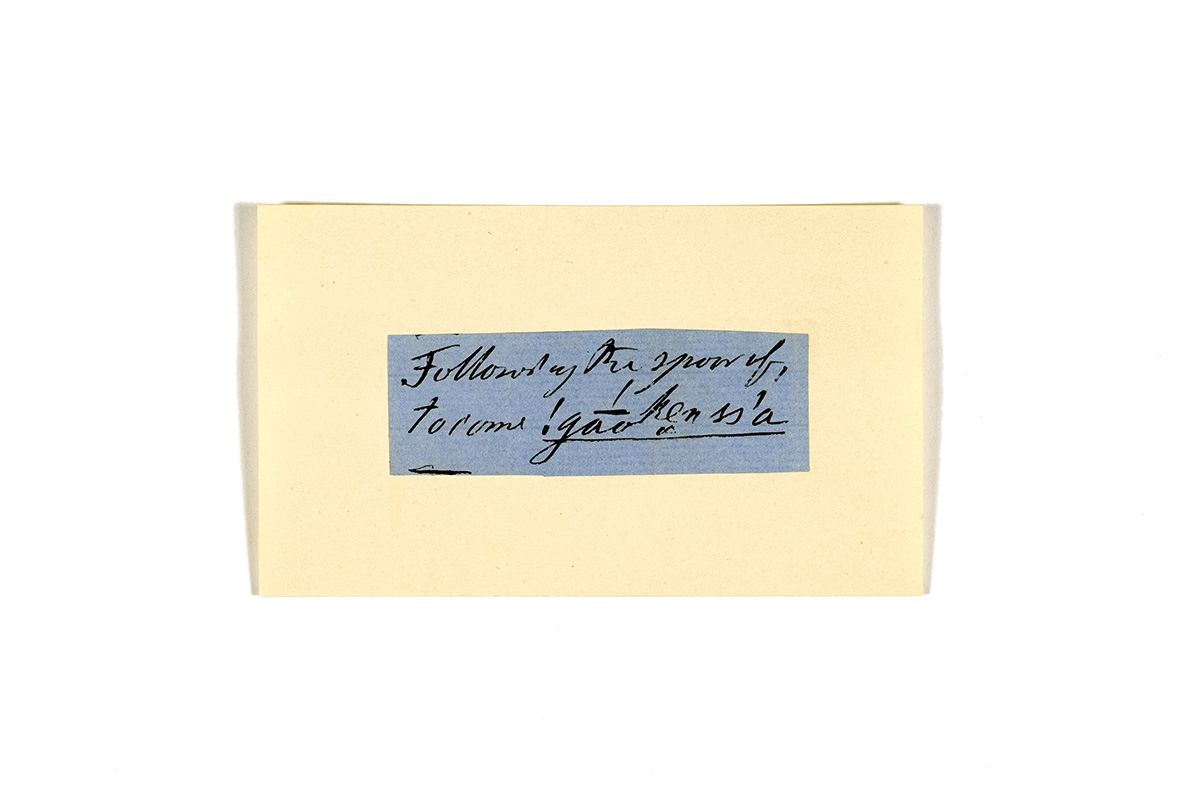 Following the spoor of,
to come !gā́okẹn ss'a